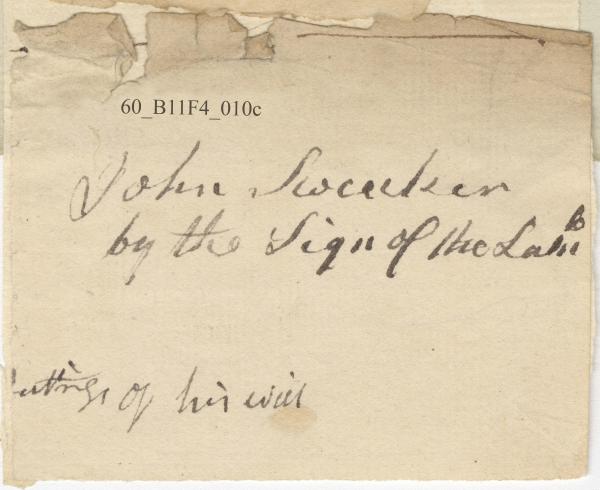 60_B11F4_010c
John Sweeker
by the Sign of the Lamb
of his will